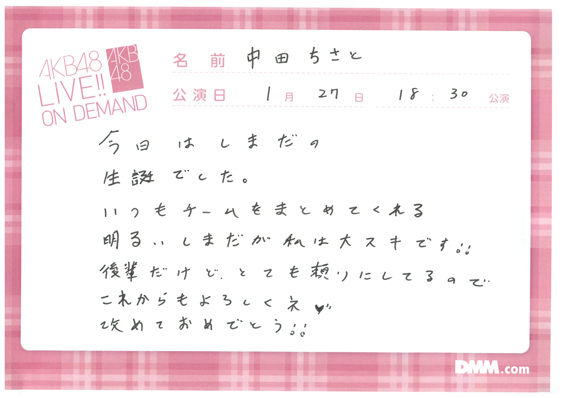 AKB48
LIVE!!
ON DEMAND
AKB
48
名前 中田ちさと
公演日 1月 27日 18:30 公演
今日はしまだの
生誕でした。
いつもチームをまとめてくれる
明るいしまだが私は大スキです!!
後輩だけど、とても頼りにしてるので
これからもよろしくネ♥
改めておめでとう!!
DMM.com